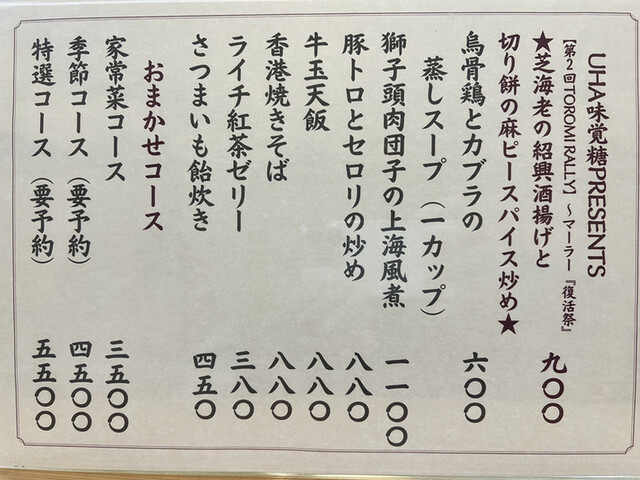 UHA味覚糖PRESENTS
【第2回TOROMI RALLY】～マーラー『復活祭』
★芝海老の紹興酒揚げと
切り餅の麻ピースパイス炒め★ 九〇〇
烏骨鶏とカブラの
蒸しスープ（一カップ） 六〇〇
獅子頭肉団子の上海風煮 一一〇〇
豚トロとセロリの炒め 八八〇
牛玉天飯 八八〇
香港焼きそば 八八〇
ライチ紅茶ゼリー 三八〇
さつまいも飴炊き 四五〇
おまかせコース
家常菜コース 三五〇〇
季節コース（要予約） 四五〇〇
特選コース（要予約） 五五〇〇